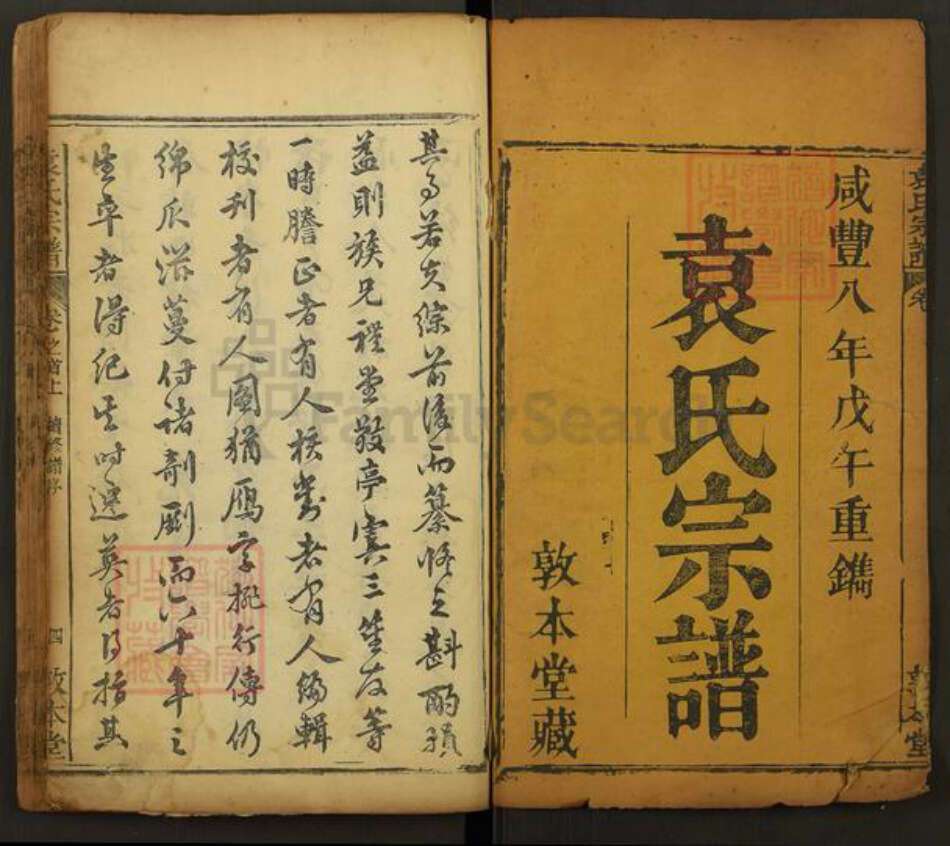 咸豐八年戊午重鐫
袁氏宗譜
敦本堂藏
袁氏宗譜 卷
敦本堂
其為若定綜前後而纂脩之斟酌損
益則族兄禮堂敬亭寅三笙友等
一時謄正者有人核對者有人編輯
校刊者有人圖猶鴈字挑行傳仍
綿瓜滋蔓付諸剞劂而六十年之
生卒者得紀生時選英者得指其
袁氏宗譜 卷之首上 續修譜序 四 敦本堂
FamilySearch